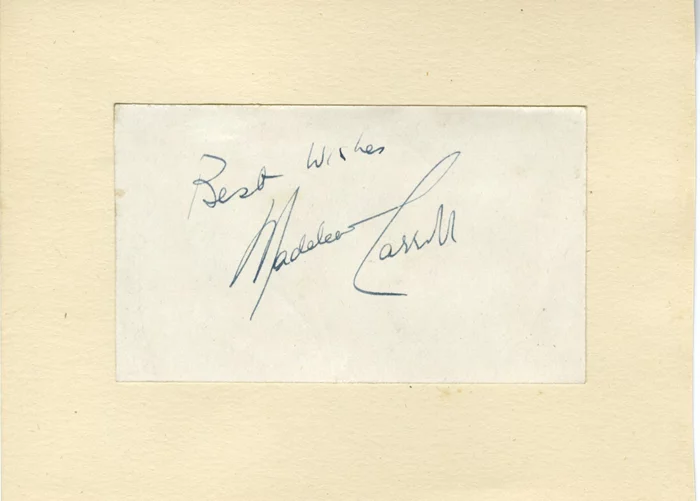 Best Wishes
Madeleine Carroll